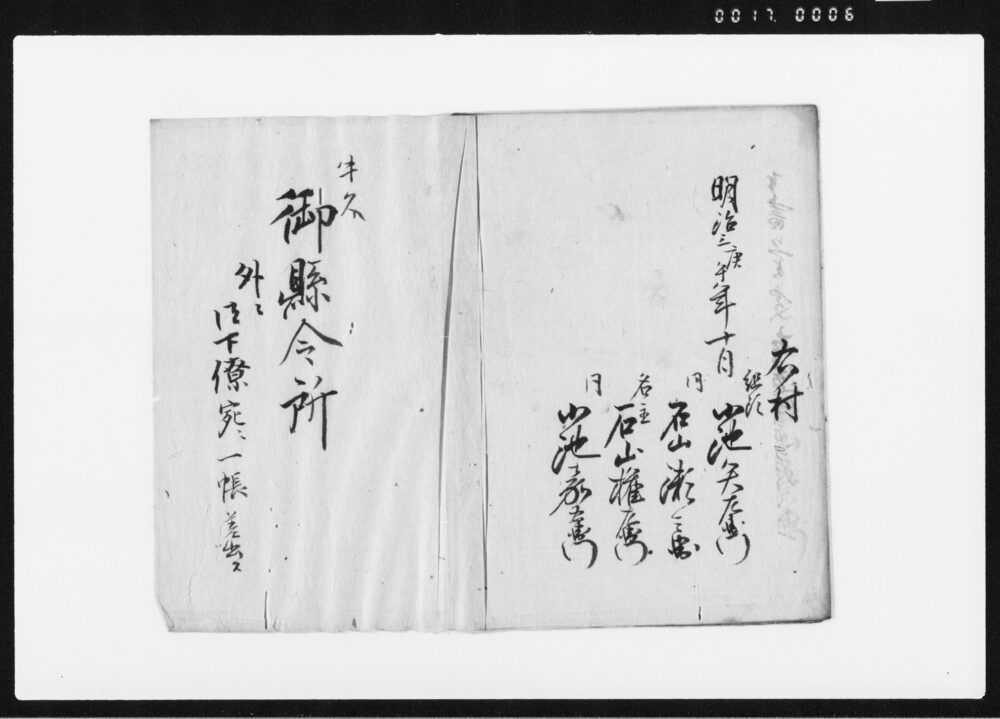 0017 0006
明治三庚午年十月
右村
組頭
小池矢左衛門
同
石山瀬三郎
名主
石山権左衛門
同
小池嘉右衛門
牛久
御縣令所
外ニ
下僚宛ニ一帳差出ス